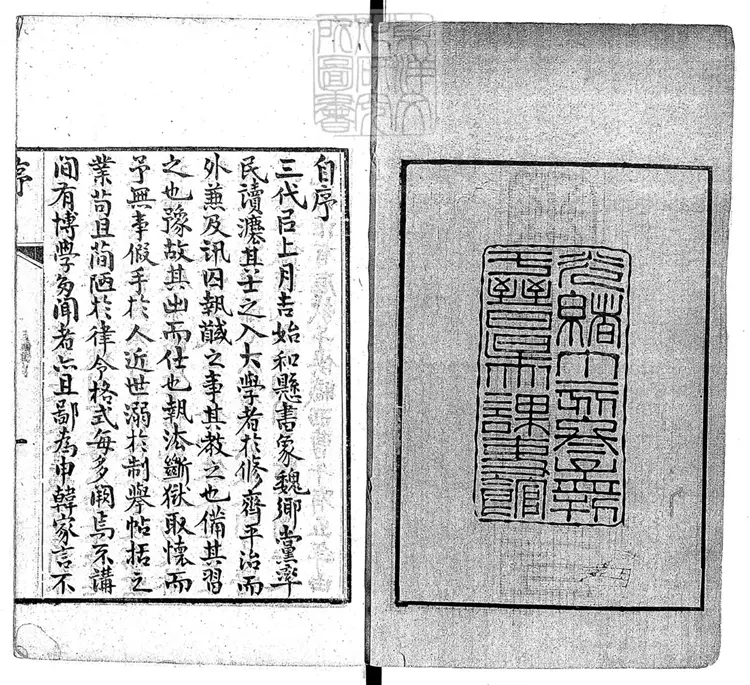 東洋文
化研究
所圖書
光緒
課吏館
自序
三代㠯上月吉始和懸書象魏鄉黨率
民讀灋其士之入大學者於修齊平治而
外兼及訊囚執馘之事其教之也備其習
之也豫故其出而仕也執法斷獄取懷而
予無事假手於人近世溺於制舉帖括之
業苟且簡陋於律令格式每多闕焉不講
間有博學多聞者亦且鄙為申韓家言不
序
一